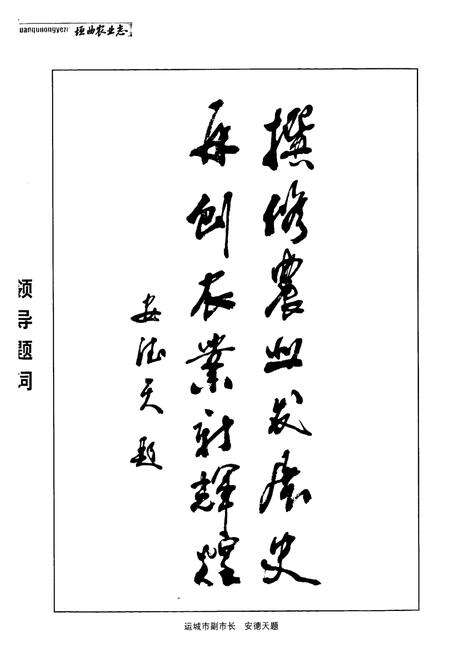 yuanqunongyezhi 垣曲农业志
领导题词
撰修農业发展史
再创农業新輝煌
安德天题
运城市副市长 安德天题